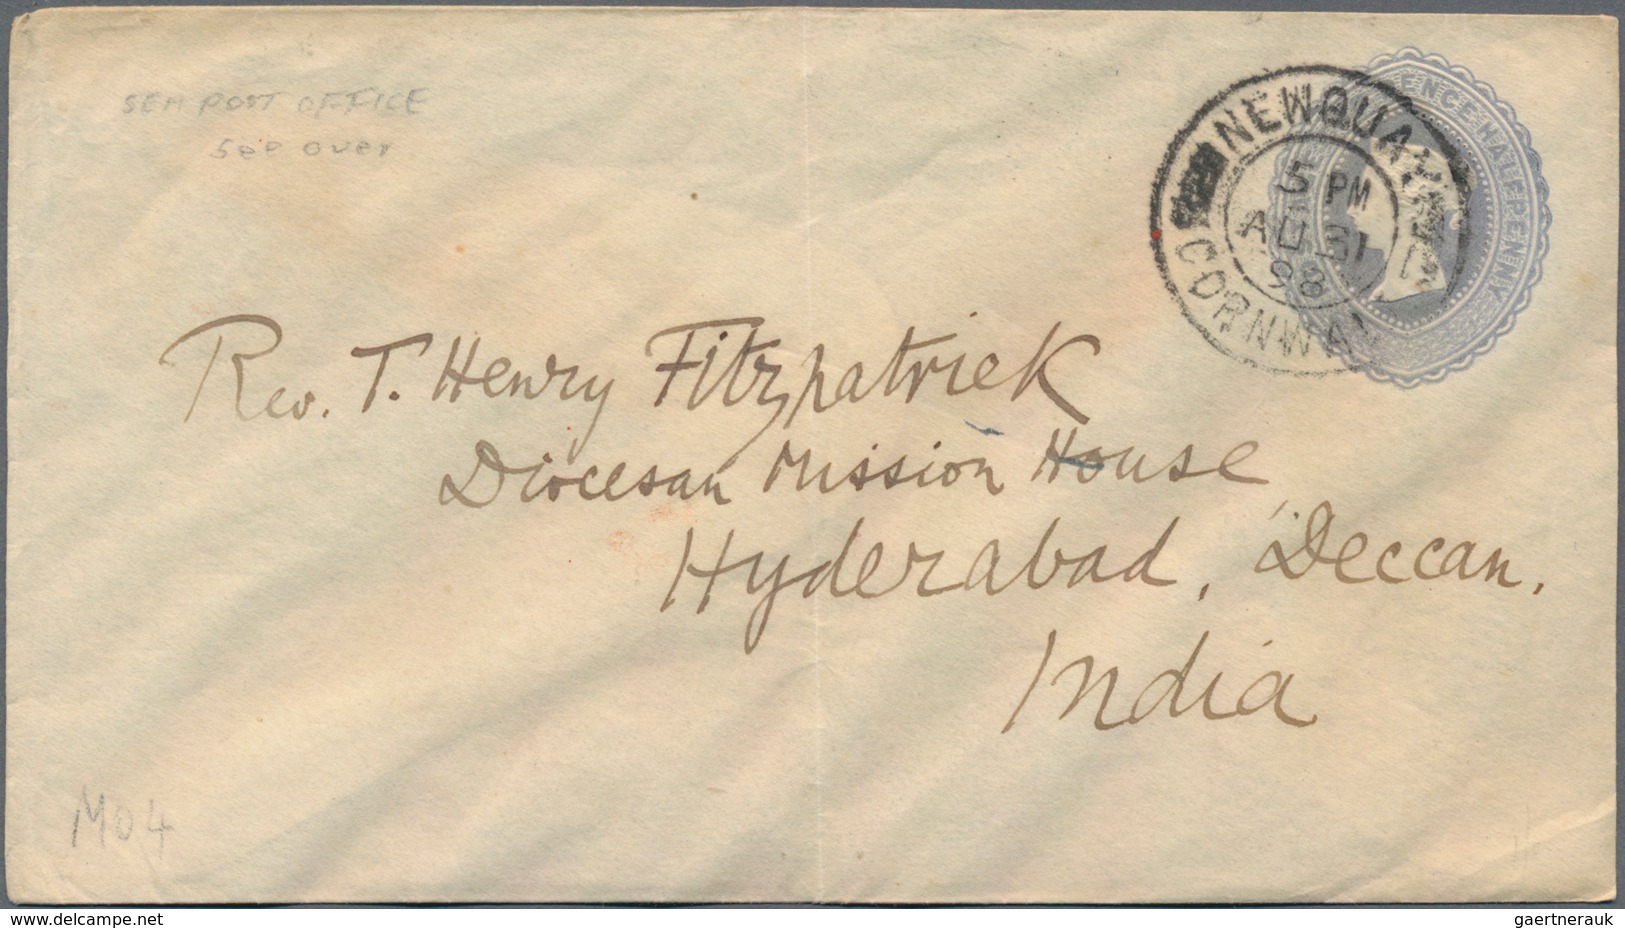 SEA POST OFFICE
see over
NEWQUAY
5 PM
AU 31
98
CORNWAL
PENCE HALFPENNY
Rev. T. Henry Fitzpatrick
Diocesan Mission House
Hyderabad, Deccan.
India
M04
delcampe.net
gaertnerauk